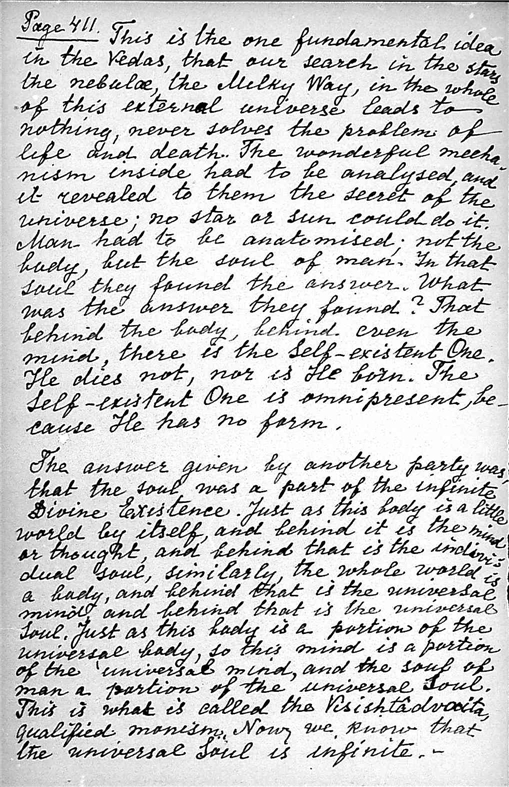 Page 411.
This is the one fundamental idea
in the Vedas, that our search in the stars,
the nebulæ, the Milky Way, in the whole
of this external universe leads to
nothing, never solves the problem of
life and death. The wonderful mecha-
nism inside had to be analysed, and
it revealed to them the secret of the
universe; no star or sun could do it.
Man had to be anatomised; not the
body, but the soul of man. In that
soul they found the answer. What
was the answer they found? That
behind the body, behind even the
mind, there is the Self-existent One.
He dies not, nor is He born. The
Self-existent One is omnipresent, be-
cause He has no form.
The answer given by another party was,
that the soul was a part of the infinite
Divine Existence. Just as this body is a little
world by itself, and behind it is the mind
or thought, and behind that is the indivi-
dual soul, similarly, the whole world is
a body, and behind that is the universal
mind and behind that is the universal
Soul. Just as this body is a portion of the
universal body, so this mind is a portion
of the universal mind, and the soul of
man a portion of the universal Soul.
This is what is called the Visishtâdvaita,
qualified monism. Now, we know that
the universal Soul is infinite. -